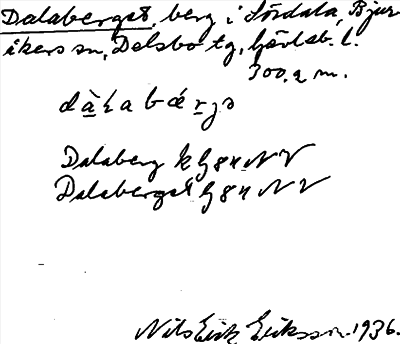 Dalaberget, berg i Sördala, Bjur
åkers sn, Delsbo tg, Gävleb. l.
300,2 m.
dàlabǽrjə
Dalaberg k G 84 NV
Dalaberget G 84 NV
Nils Erik Eriksson. 1936.